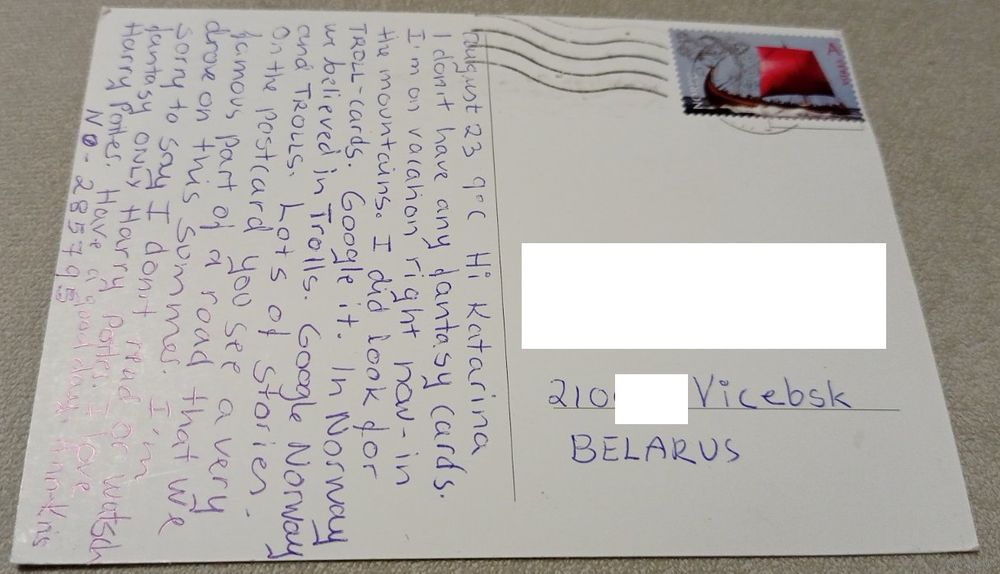 August 23 9°C Hi Katarina
I don't have any fantasy cards.
I'm on vacation right now - in
the mountains. I did look for
TROLL-cards. Google it. In Norway
we believed in Trolls. Google Norway
and TROLLS. Lots of stories.
On the postcard you see a very
famous part of a road that we
drove on this summer. I'm
sorry to say I don't read or watsch
fantasy only Harry Potter. I love
Harry Potter. Have a good day!
NO-285795
210
Vicebsk
BELARUS
A